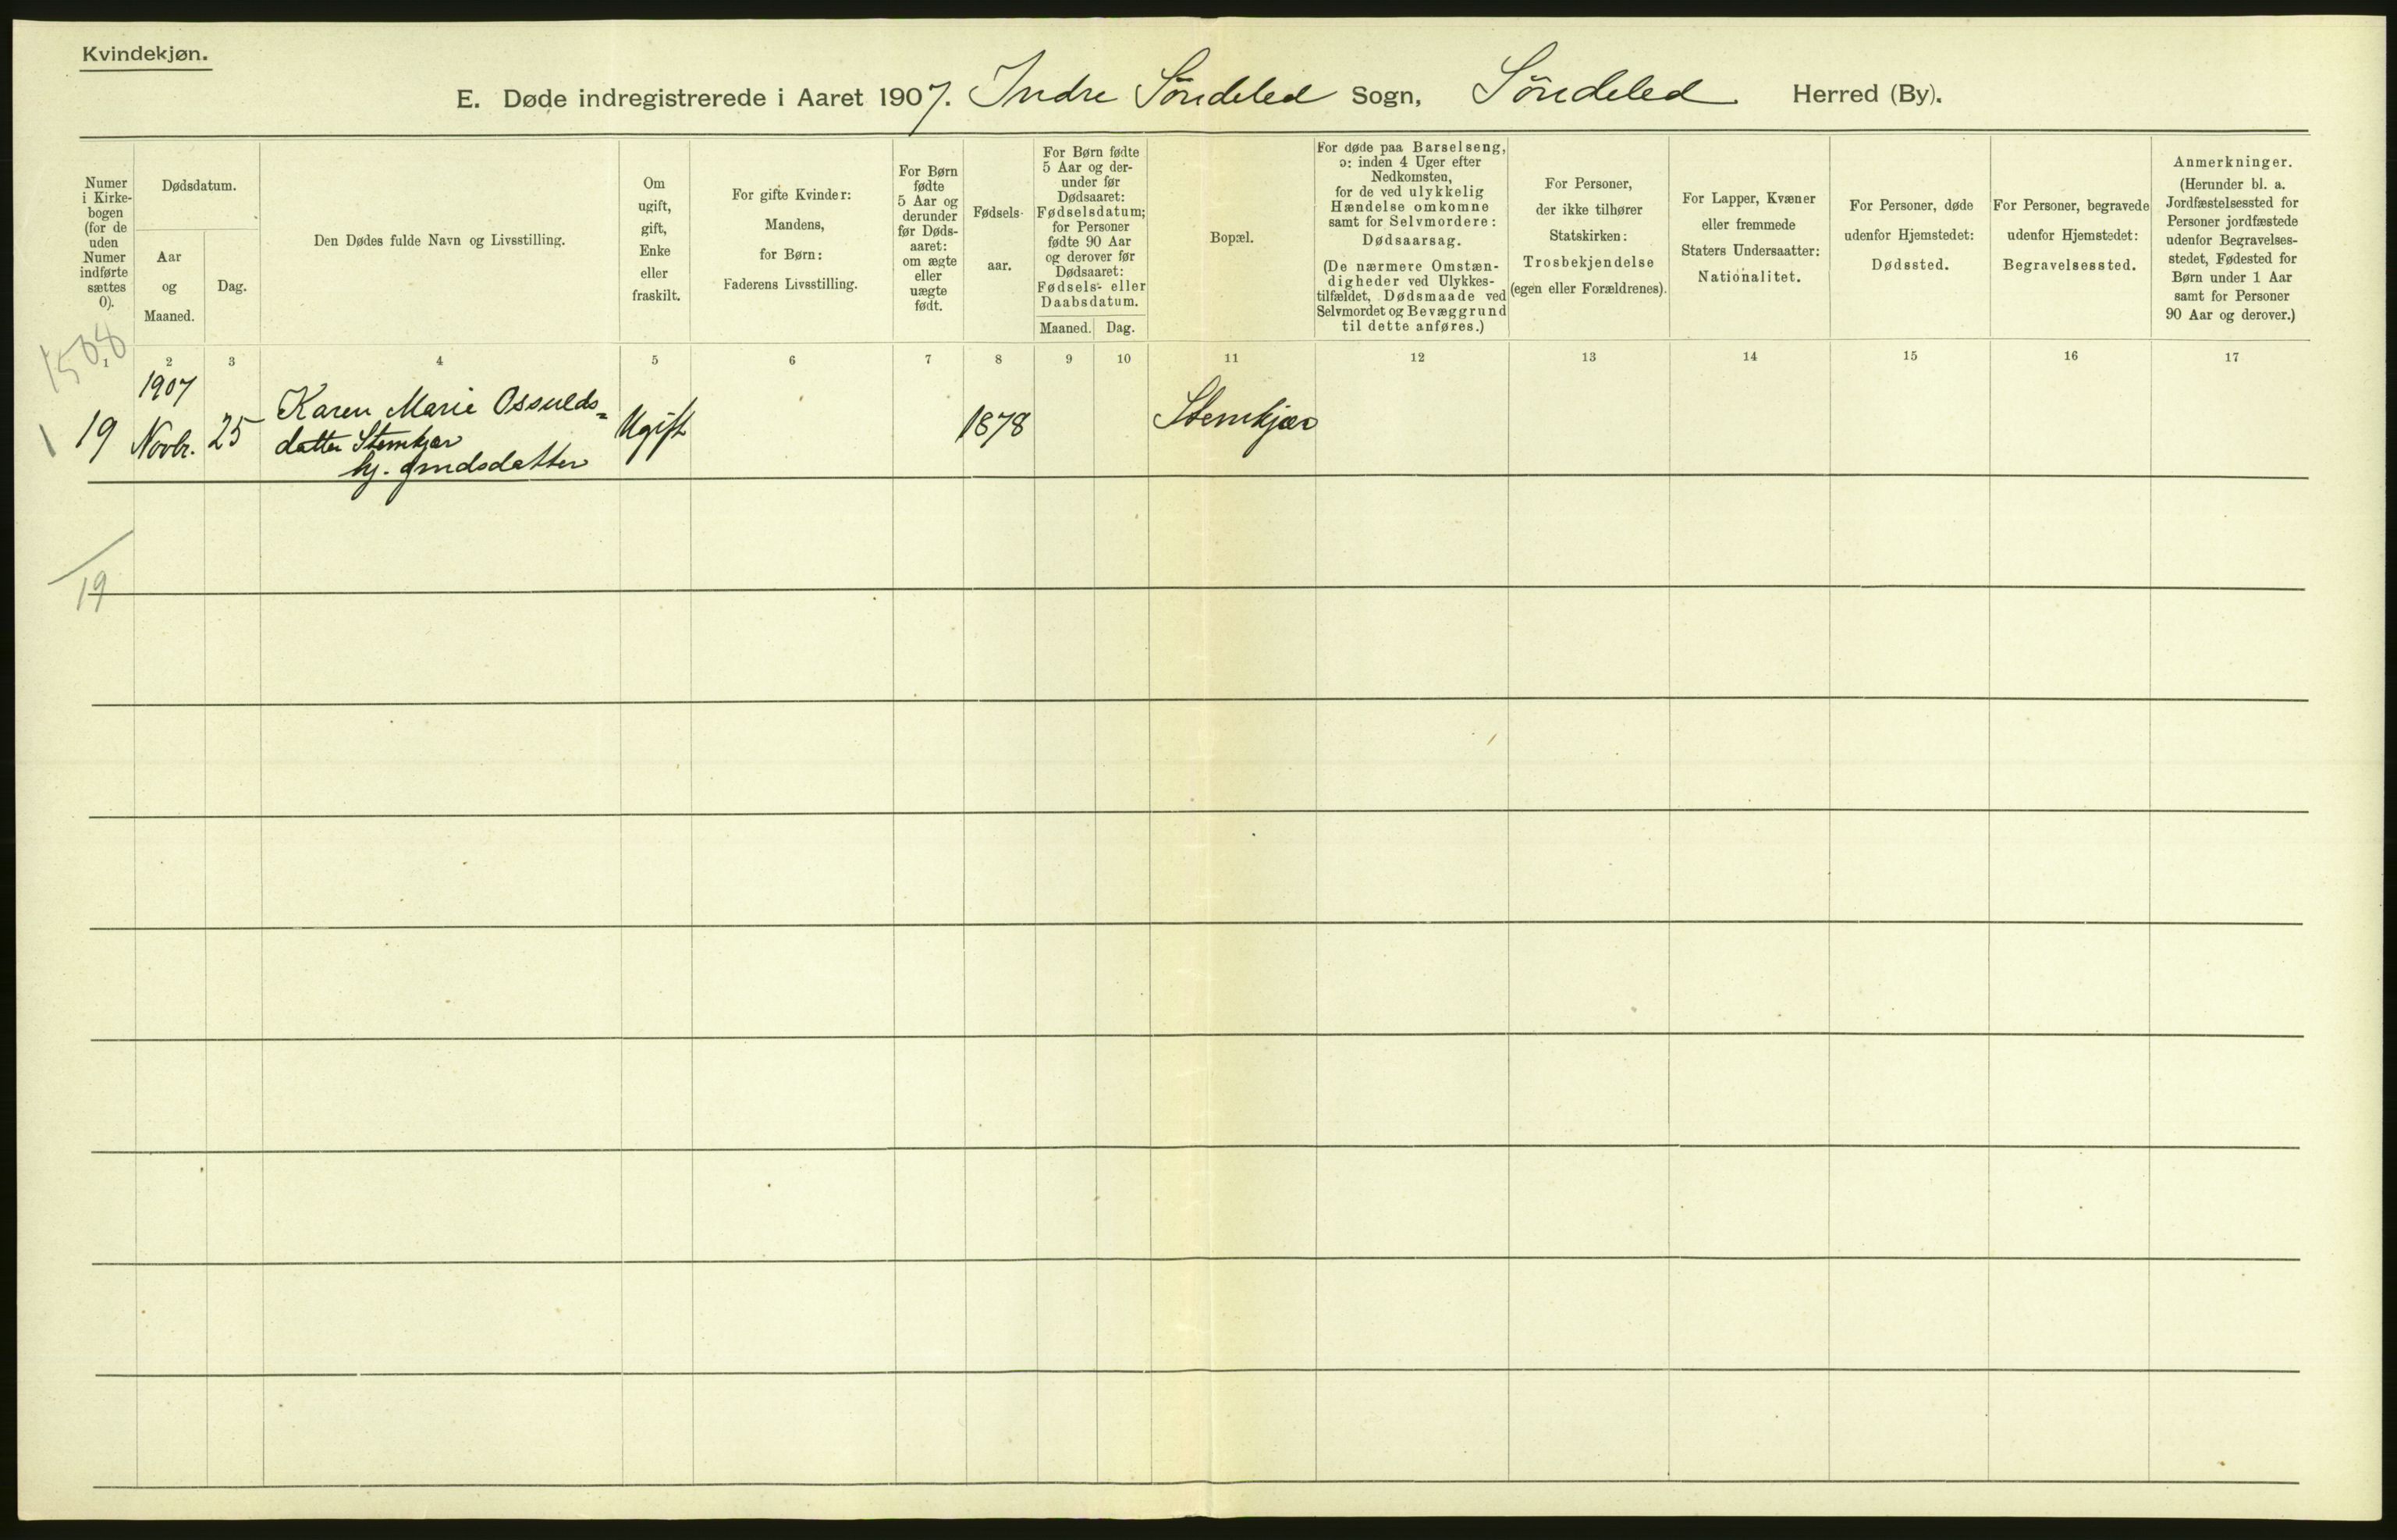 Kvindekjøn.
E. Døde indregistrerede i Aaret 1907. Indre Söndeled Sogn, Söndeled Herred (By).
Numer
i Kirke-
bogen
(for de
uden
Numer
indførte
sættes
0).
Dødsdatum.
Aar
og
Maaned.
Dag.
Den Dødes fulde Navn og Livsstilling.
Om
ugift,
gift,
Enke
eller
fraskilt.
For gifte Kvinder:
Mandens,
for Børn:
Faderens Livsstilling.
For Børn
fødte
5 Aar og
derunder
før Døds-
aaret:
om ægte
eller
uægte
født.
Fødsels-
aar.
For Børn fødte
5 Aar og der-
under før
Dødsaaret:
Fødselsdatum;
for Personer
fødte 90 Aar
og derover før
Dødsaaret:
Fødsels- eller
Daabsdatum.
Maaned. Dag.
Bopæl.
For døde paa Barselseng,
ɔ: inden 4 Uger efter
Nedkomsten,
for de ved ulykkelig
Hændelse omkomne
samt for Selvmordere:
Dødsaarsag.
(De nærmere Omstæn-
digheder ved Ulykkes-
tilfældet, Dødsmaade ved
Selvmordet og Bevæggrund
til dette anføres.)
For Personer,
der ikke tilhører
Statskirken:
Trosbekjendelse
(egen eller Forældrenes).
For Lapper, Kvæner
eller fremmede
Staters Undersaatter:
Nationalitet.
For Personer, døde
udenfor Hjemstedet:
Dødssted.
For Personer, begravede
udenfor Hjemstedet:
Begravelsessted.
Anmerkninger.
(Herunder bl. a.
Jordfæstelsessted for
Personer jordfæstede
udenfor Begravelses-
stedet, Fødested for
Børn under 1 Aar
samt for Personer
90 Aar og derover.)
1508
1 2 3 4 5 6 7 8 9 10 11 12 13 14 15 16 17
1907
19 Novbr. 25 Karen Marie Ossulds= Ugift 1878 Stemkjær
datter Stemkjær
hj. gmdsdatter
19